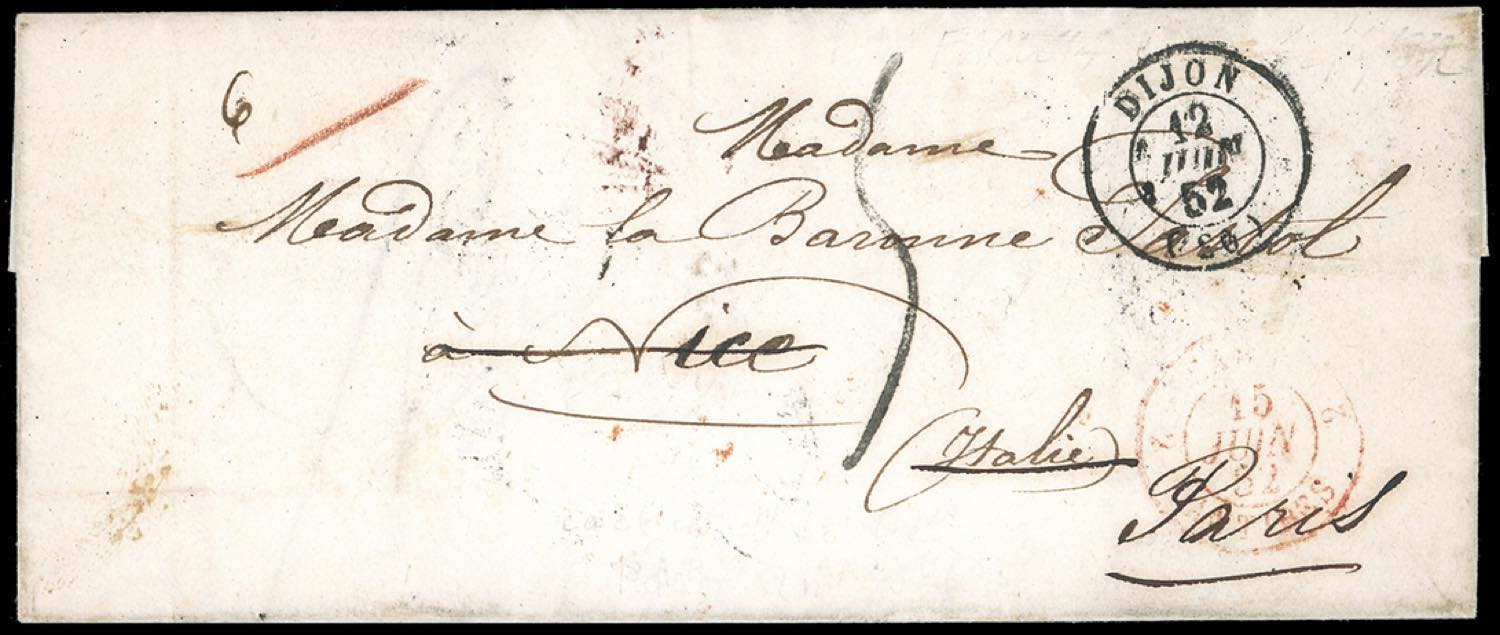 6
Madame
Madame la Baronne
DIJON
12
JUIN
52
(20)
à Nice
(Italie)
15
JUIN
52
2
2
Paris